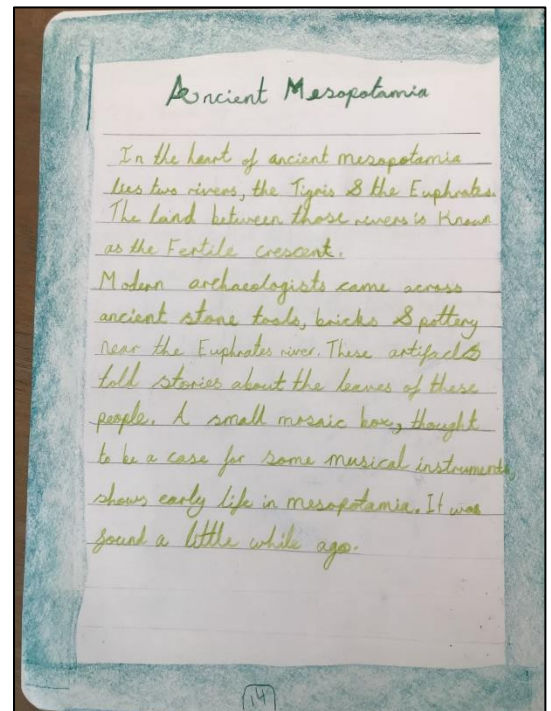 Ancient Mesopotamia
In the heart of ancient mesopotamia
lies two rivers, the Tigris & the Euphrates.
The land between those rivers is Known
as the Fertile crescent.
Modern archaeologists came across
ancient stone tools, bricks & pottery
near the Euphrates river. These artifacts
told stories about the leaves of these
people. A small mosaic box, thought
to be a case for some musical instruments,
shows early life in mesopotamia. It was
found a little while ago.
14